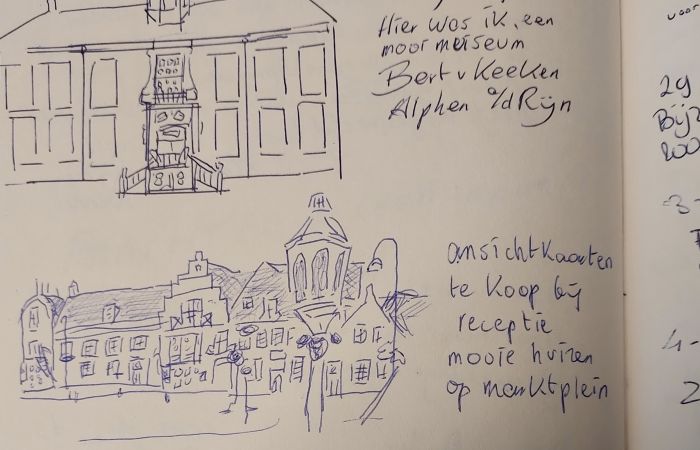 Hier was ik, een
mooi meiseum
Bert v Keeken
Alphen a/d Rijn
ansichtkaarten
te koop bij
receptie
mooie huizen
op marktplein
voor
29
Bijz
200
-3-
4-
2